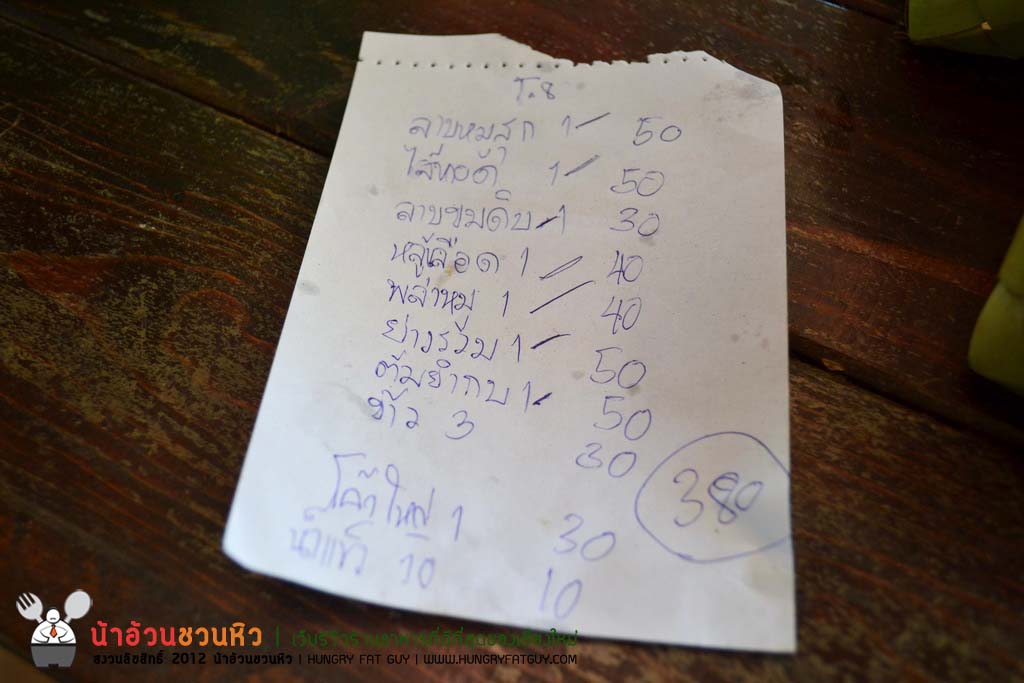 โ.8
ลาบหมูสุก 1 50
ไส้ทอด 1 50
ลาบขมดิบ 1 30
หลู้เลือด 1 40
พล่าหมู 1 40
ย่างรวม 1 50
ต้มยำกบ 1 50
ข้าว 3 30
380
โค้กใหญ่ 1 30
น้ำแข็ง 10 10
น้าอ้วนชวนหิว | เว็บรีวิวร้านอาหารที่ดีที่สุดของเชียงใหม่
สงวนลิขสิทธิ์ 2012 น้าอ้วนชวนหิว | HUNGRY FAT GUY | WWW.HUNGRYFATGUY.COM